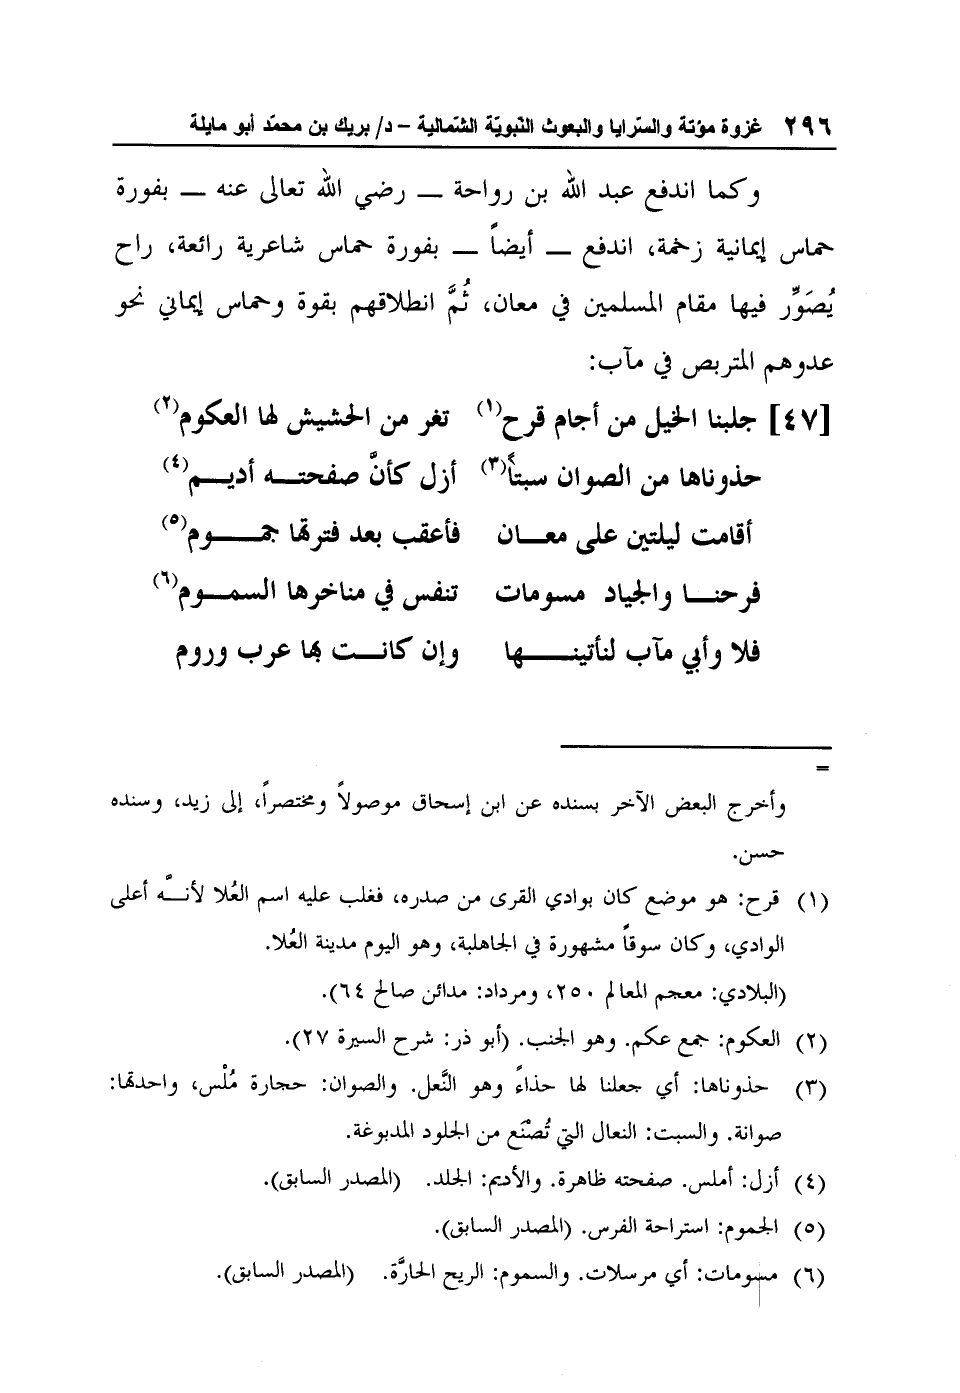 ٢٩٦ غزوة مؤتة والسّرايا والبعوث النّبويّة الشّمالية – د/ بريك بن محمّد أبو مايلة
وكما اندفع عبد الله بن رواحة ــ رضي الله تعالى عنه ــ بفورة
حماس إيمانية زخمة، اندفع ــ أيضاً ــ بفورة حماس شاعرية رائعة، راح
يُصَوِّر فيها مقام المسلمين في معان، ثُمَّ انطلاقهم بقوة وحماس إيماني نحو
عدوهم المتربص في مآب:
[٤٧] جلبنا الخيل من أجام قرح(١) تغر من الحشيش لها العكوم(٢)
حذوناها من الصوان سبتاً(٣) أزل كأنَّ صفحتـــه أديـــم(٤)
أقامت ليلتين على معـــان فأعقب بعد فترتها جمـــوم(٥)
فرحنـــا والجياد مسومات تنفس في مناخرها السمـــوم(٦)
فلا وأبي مآب لنأتينـــها وإن كانـــت بها عرب وروم
=
وأخرج البعض الآخر بسنده عن ابن إسحاق موصولاً ومختصراً، إلى زيد، وسنده
حسن.
(١) قرح: هو موضع كان بوادي القرى من صدره، فغلب عليه اسم العُلا لأنَّه أعلى
الوادي، وكان سوقاً مشهورة في الجاهلية، وهو اليوم مدينة العُلا.
(البلادي: معجم المعالم ٢٥٠، ومرداد: مدائن صالح ٦٤).
(٢) العكوم: جمع عكم. وهو الجنب. (أبو ذر: شرح السيرة ٢٧).
(٣) حذوناها: أي جعلنا لها حذاءً وهو النَّعل. والصوان: حجارة مُلْس، واحدتها:
صوانة. والسبت: النعال التي تُصْنَع من الجلود المدبوغة.
(٤) أزل: أملس. صفحته ظاهرة. والأديم: الجلد. (المصدر السابق).
(٥) الجموم: استراحة الفرس. (المصدر السابق).
(٦) مسومات: أي مرسلات. والسموم: الريح الحارَّة. (المصدر السابق).